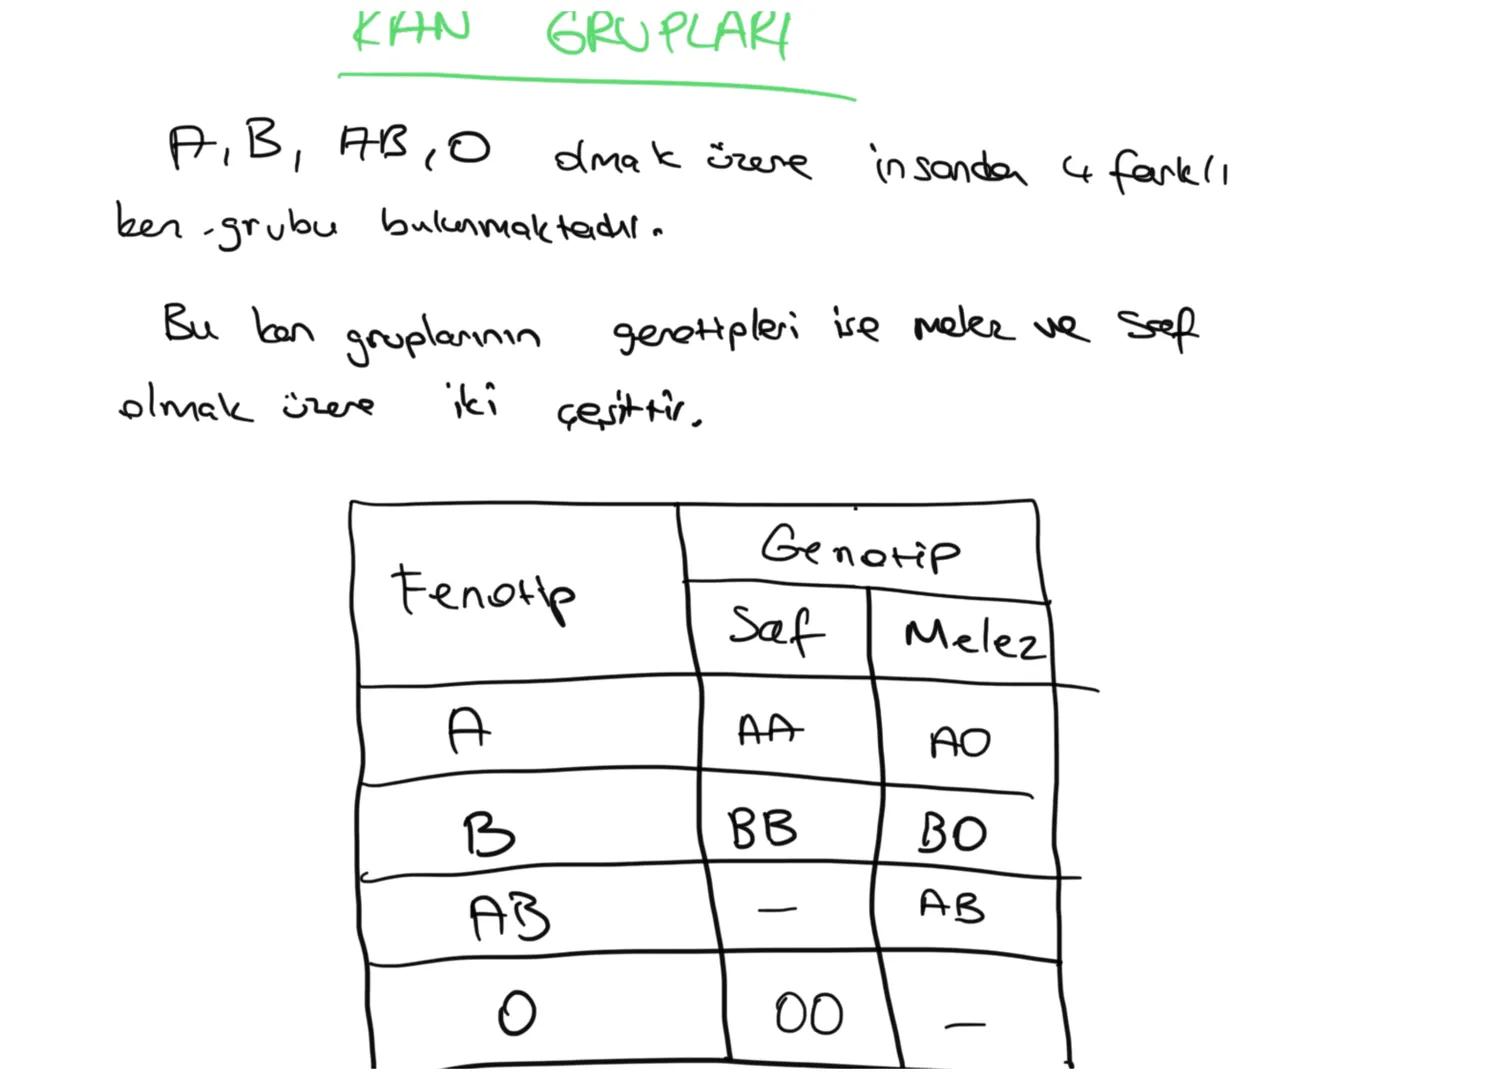 KAN GRUPLARI
A, B, AB, O olmak üzere insanda 4 farklı
kan grubu bulunmaktadır.
Bu kan gruplarının genotipleri ise melez ve saf
olmak üzere iki çeşittir.
Fenotip Genotip
Saf Melez
A AA AO
B BB BO
AB — AB
O OO —